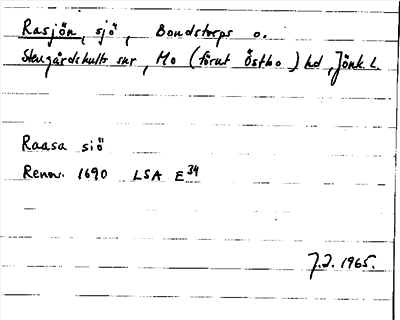 Rasjön, sjö, Bondstorps o.
Stengårdshults snr, Mo (förut Östbo) hd, Jönk. L.
Raasa siö
Rennv. 1690 LSA E34
J.J. 1965.